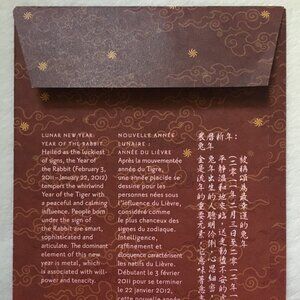 LUNAR NEW YEAR:
YEAR OF THE RABBIT
Hailed as the luckiest
of signs, the Year of
the Rabbit (February 3,
2011 – January 22, 2012)
tempers the whirlwind
Year of the Tiger with
a peaceful and calming
influence. People born
under the sign of
the Rabbit are smart,
sophisticated and
articulate. The dominant
element of this new
year is metal, which is
associated with will-
power and tenacity.
NOUVELLE ANNÉE
LUNAIRE :
ANNÉE DU LIÈVRE
Après la mouvementée
année du Tigre,
une année placide se
dessine pour les
personnes nées sous
l'influence du Lièvre,
considéré comme
le plus chanceux des
signes du zodiaque.
Intelligence,
raffinement et
éloquence caractérisent
les natifs du Lièvre.
Débutant le 3 février
2011 pour se terminer
le 22 janvier 2012,
cette nouvelle année
農曆新年:
兔年
被稱頌為最幸運的兔年